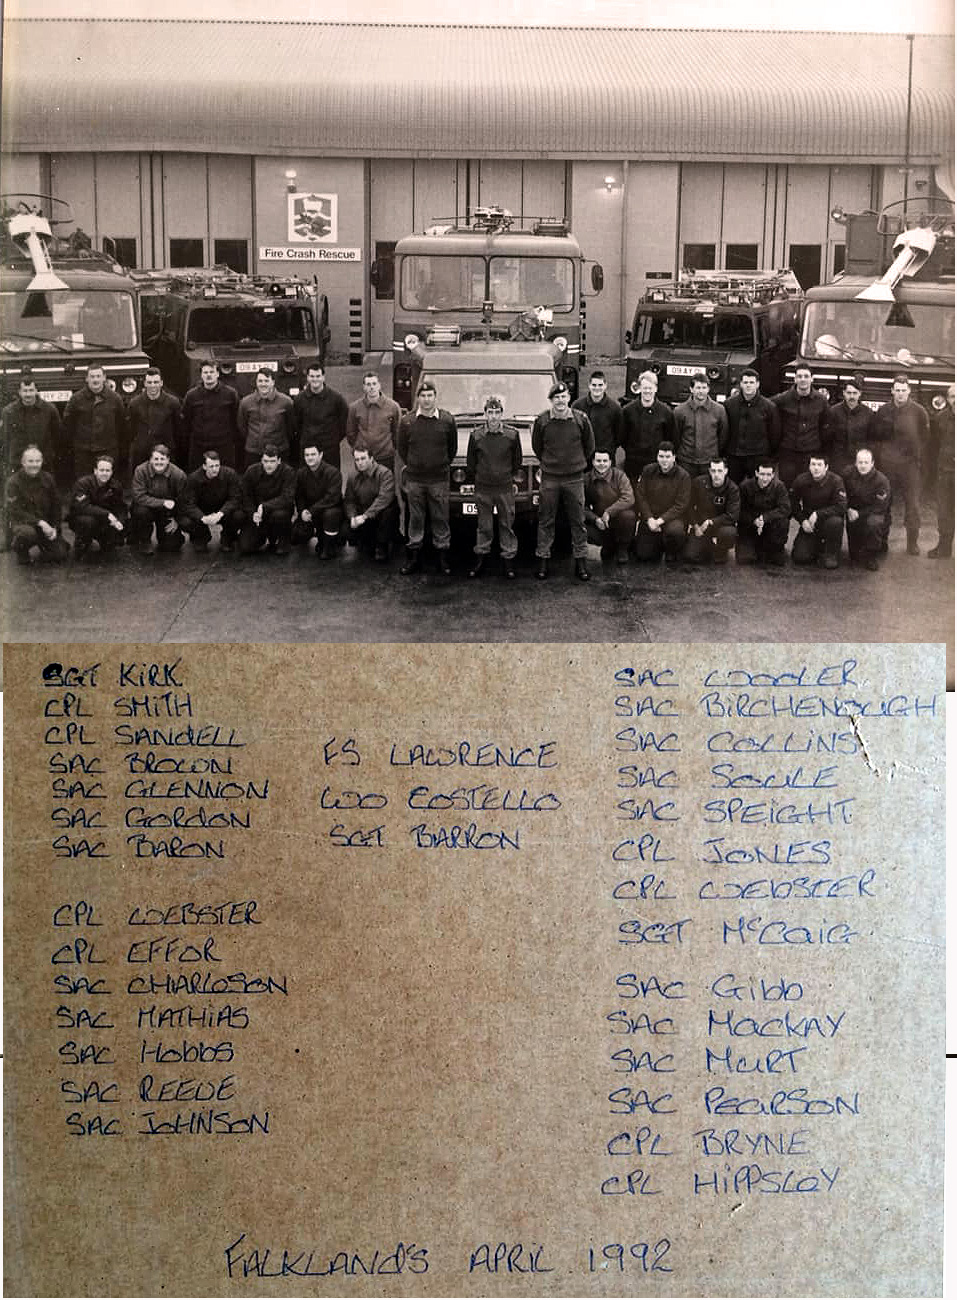 Fire Crash Rescue
09 AY 01
SGT KIRK
CPL SMITH
CPL SANDELL
SAC BROWN
SAC GLENNON
SAC GORDON
SAC BARON
CPL WEBSTER
CPL EFFOR
SAC CHARLSON
SAC MATHIAS
SAC Hobbs
SAC REEVE
SAC JOHNSON
FS LAWRENCE
WO COSTELLO
SGT BARRON
SAC WOOLER
SAC BIRCHENOUGH
SAC COLLINS
SAC SOULE
SAC SPEIGHT
CPL JONES
CPL WEBSTER
SGT McCaiG
SAC Gibb
SAC MacKAY
SAC MURT
SAC PEARSON
CPL BRYNE
CPL HIPPSLEY
FALKLANd'S APRIL 1992